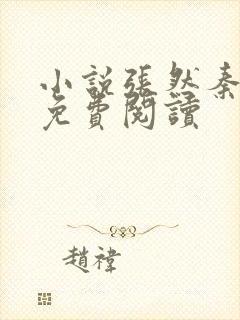 小說張然秦
免費閱讀
趙禕